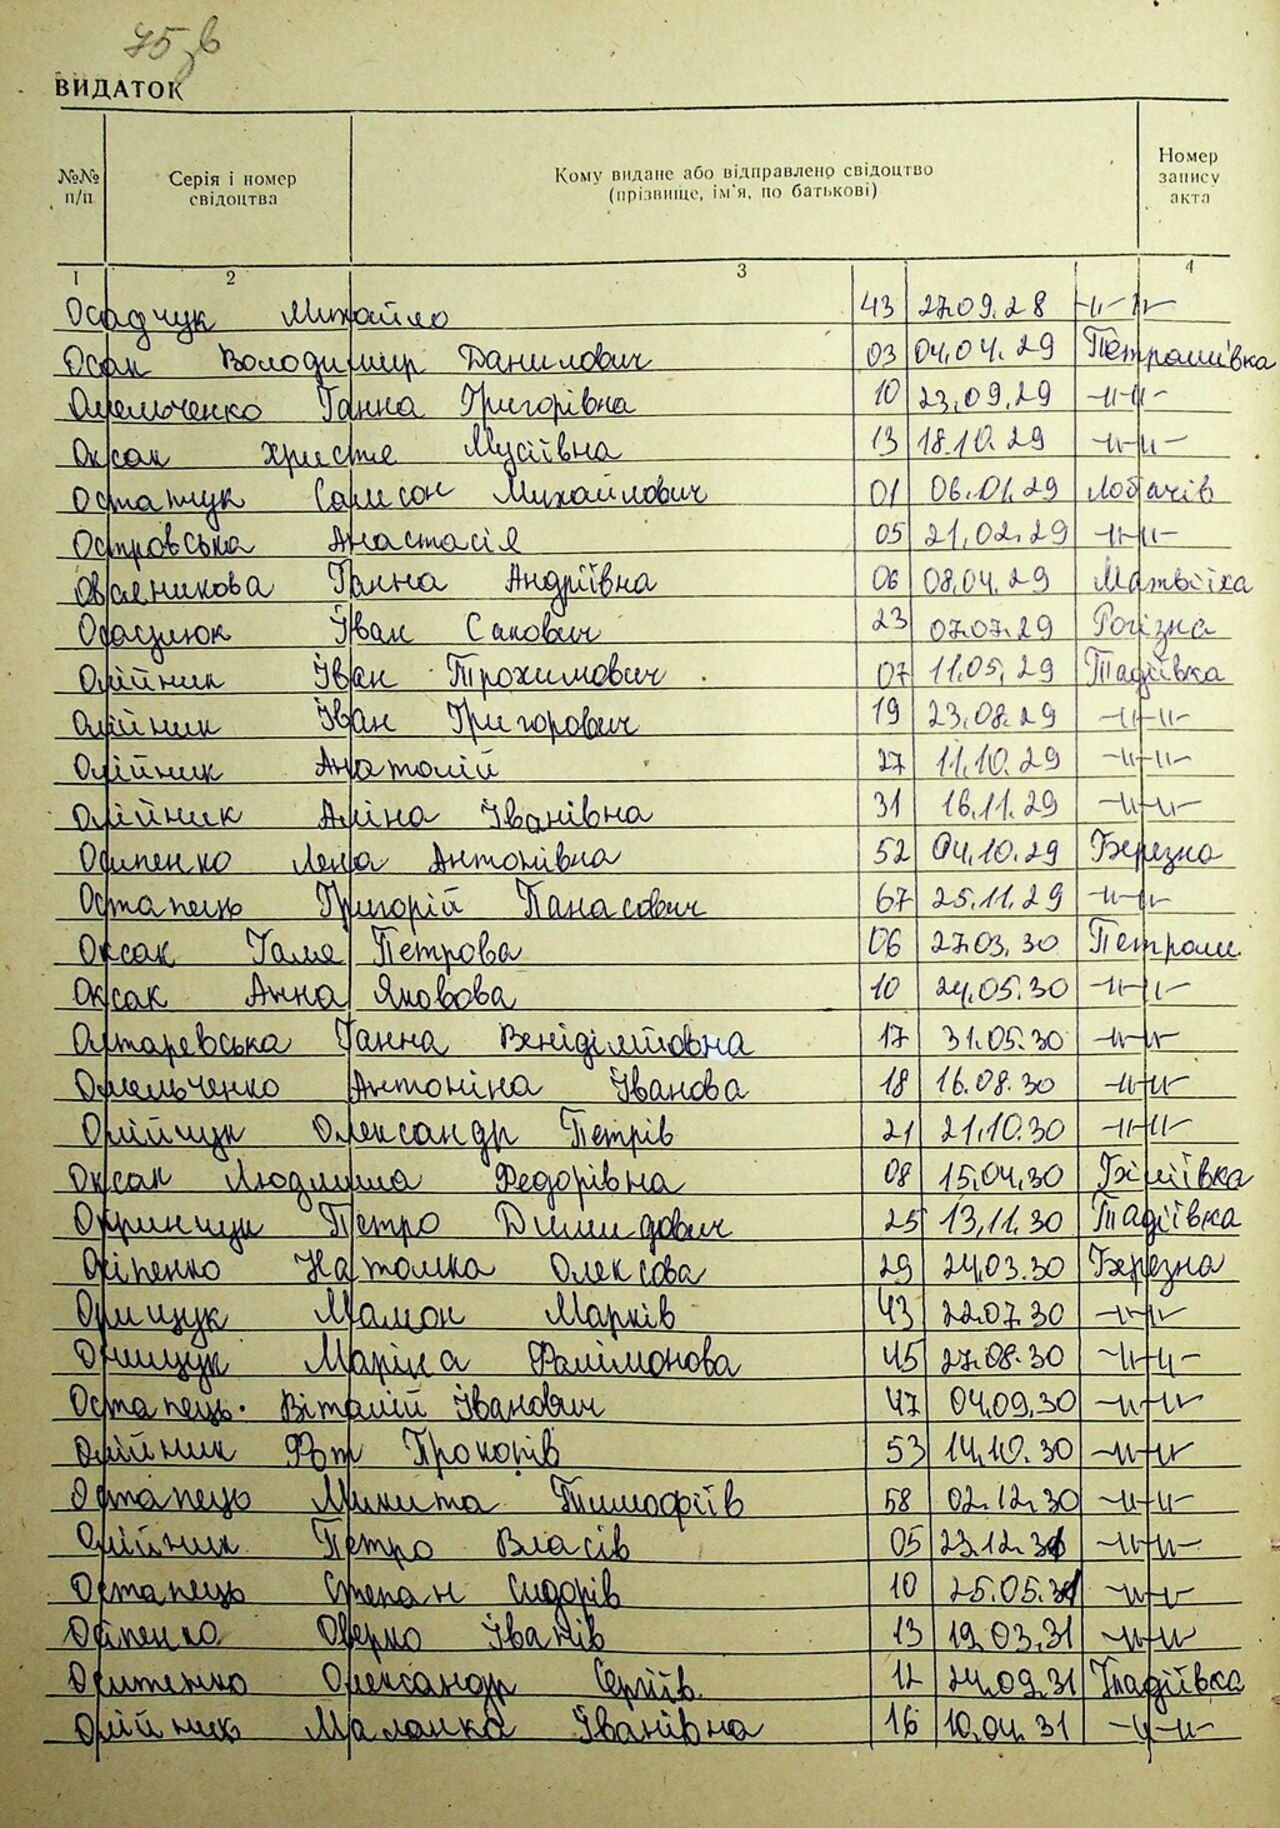 75зв
ВИДАТОК
№№ п/п
Серія і номер свідоцтва
Кому видане або відправлено свідоцтво (прізвище, ім'я, по батькові)
Номер запису акта
1 2 3 4
Осадчук Михайло 43 27.09.28 -//-//-
Осак Володимир Данилович 03 04.04.29 Петрашівка
Омельченко Ганна Григорівна 10 23.09.29 -//-//-
Оксак Христя Мусіївна 13 18.10.29 -//-//-
Остапчук Самсон Михайлович 01 06.01.29 Лобачів
Островська Анастасія 05 21.02.29 -//-//-
Ганна Андріївна 06 08.04.29 Матвіїха
Осадчюк Іван Сакович 23 07.07.29 Рогізна
Олійник Іван Трохимович 07 11.05.29 Тадіївка
Олійник Іван Григорович 19 23.08.29 -//-//-
Олійник Анатолій 27 11.10.29 -//-//-
Олійник Аліна Іванівна 31 16.11.29 -//-//-
Осипенко Лена Антонівна 52 04.10.29 Березна
Остапець Григорій Панасович 67 25.11.29 -//-//-
Оксак Галя Петрова 06 27.03.30 Петраш.
Оксак Анна Яковова 10 24.05.30 -//-//-
Олтаревська Ганна 17 31.05.30 -//-//-
Омельченко Антоніна Іванова 18 16.08.30 -//-//-
Олійчук Олександр Петрів 21 21.10.30 -//-//-
Оксак Людмила Федорівна 08 15.04.30 Біліївка
Петро Димидович 25 13.11.30 Тадіївка
Осіпенко Наталка Олексова 29 24.03.30 Березна
Онищук Мамон Марків 43 22.07.30 -//-//-
Онищук Маріка Фалімонова 45 27.08.30 -//-//-
Остапець. Віталій Іванович 47 04.09.30 -//-//-
Олійник Прокопів 53 14.10.30 -//-//-
Остапець Микита Тимофіїв 58 02.12.30 -//-//-
Олійник Петро Власів 05 23.12.31 -//-//-
Остапець Степан Сидорів 10 25.05.31 -//-//-
Осіпенко Оверко Іванів 13 19.03.31 -//-//-
Олександр Сергіїв. 12 24.09.31 Тадіївка
Олійник Маланка Іванівна 16 10.04.31 -//-//-